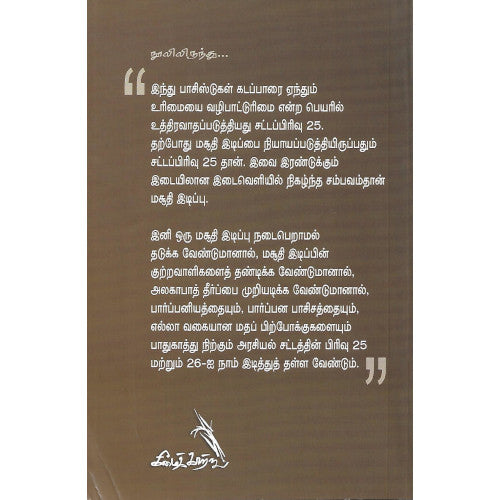 நூலிலிருந்து...
“
இந்து பாசிஸ்டுகள் கடப்பாரை ஏந்தும்
உரிமையை வழிபாட்டுரிமை என்ற பெயரில்
உத்திரவாதப்படுத்தியது சட்டப்பிரிவு 25.
தற்போது மசூதி இடிப்பை நியாயப்படுத்தியிருப்பதும்
சட்டப்பிரிவு 25 தான். இவை இரண்டுக்கும்
இடையிலான இடைவெளியில் நிகழ்ந்த சம்பவம்தான்
மசூதி இடிப்பு.
இனி ஒரு மசூதி இடிப்பு நடைபெறாமல்
தடுக்க வேண்டுமானால், மசூதி இடிப்பின்
குற்றவாளிகளைத் தண்டிக்க வேண்டுமானால்,
அலகாபாத் தீர்ப்பை முறியடிக்க வேண்டுமானால்,
பார்ப்பனியத்தையும், பார்ப்பன பாசிசத்தையும்,
எல்லா வகையான மதப் பிற்போக்குகளையும்
பாதுகாத்து நிற்கும் அரசியல் சட்டத்தின் பிரிவு 25
மற்றும் 26-ஐ நாம் இடித்துத் தள்ள வேண்டும்.
”
கீழைக்காற்று